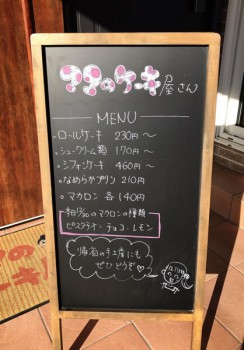 ケーキ屋さん
MENU
・ロールケーキ 230円〜
・シュークリーム 170円〜
・シフォンケーキ 460円〜
・なめらかプリン 210円
・マカロン 各140円
本日のマカロンの種類
ピスタチオ・チョコ・レモン
帰省の手土産にも
ぜひどうぞ♡